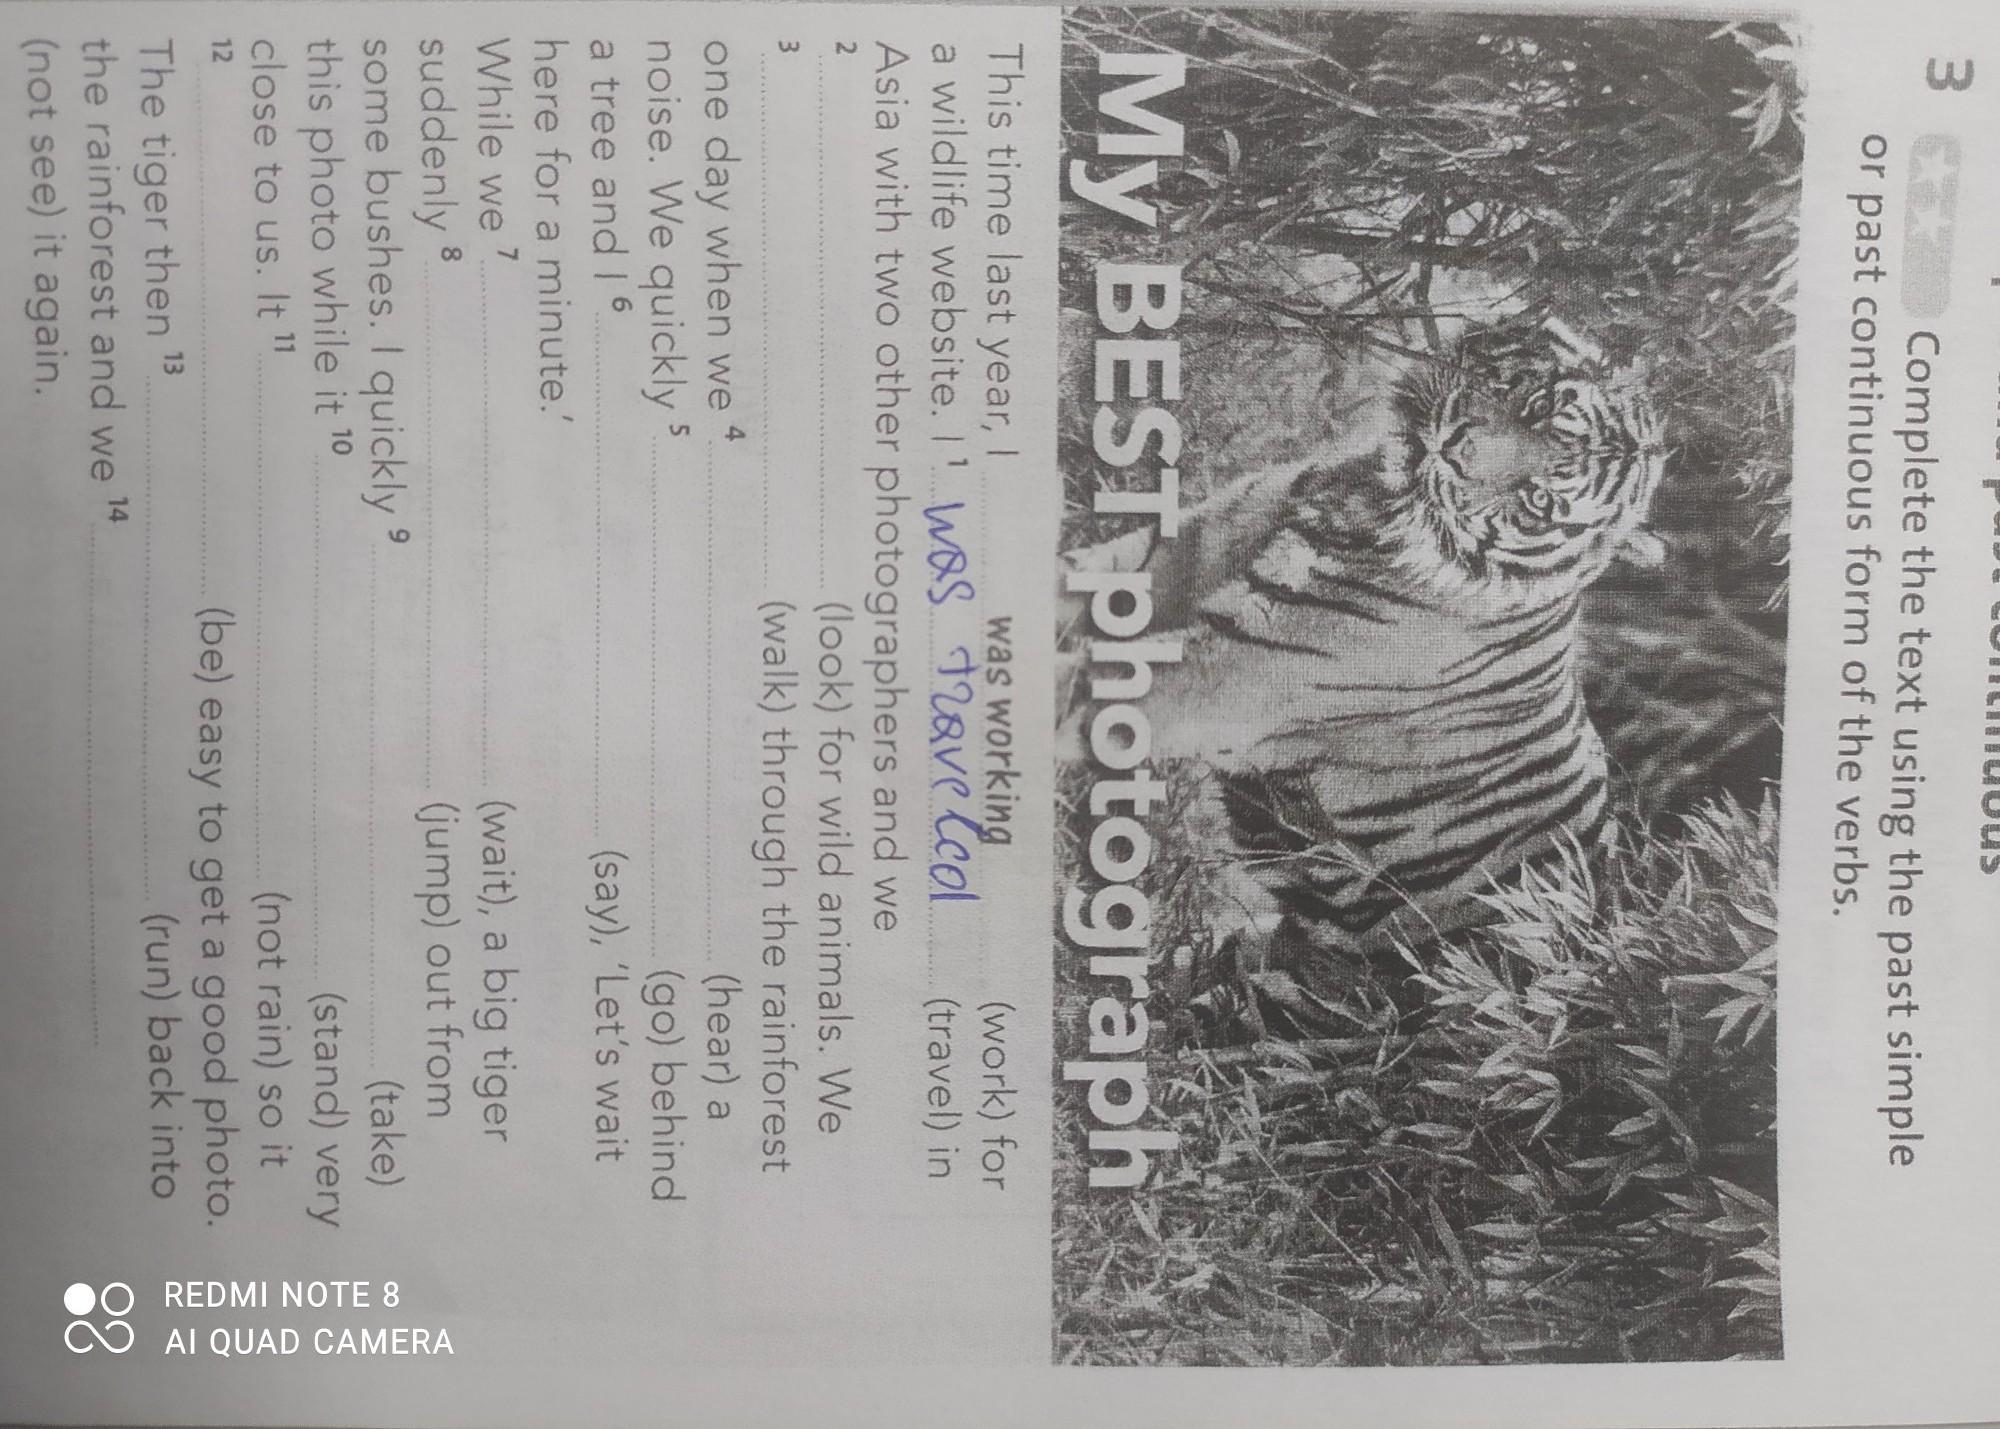 3 Complete the text using the past simple
or past continuous form of the verbs.
My BEST photograph
This time last year, I was working (work) for
a wildlife website. I 1 was traveled (travel) in
Asia with two other photographers and we
2 (look) for wild animals. We
3 (walk) through the rainforest
one day when we 4 (hear) a
noise. We quickly 5 (go) behind
a tree and I 6 (say), ‘Let’s wait
here for a minute.’
While we 7 (wait), a big tiger
suddenly 8 (jump) out from
some bushes. I quickly 9 (take)
this photo while it 10 (stand) very
close to us. It 11 (not rain) so it
12 (be) easy to get a good photo.
The tiger then 13 (run) back into
the rainforest and we 14
(not see) it again.
REDMI NOTE 8
AI QUAD CAMERA